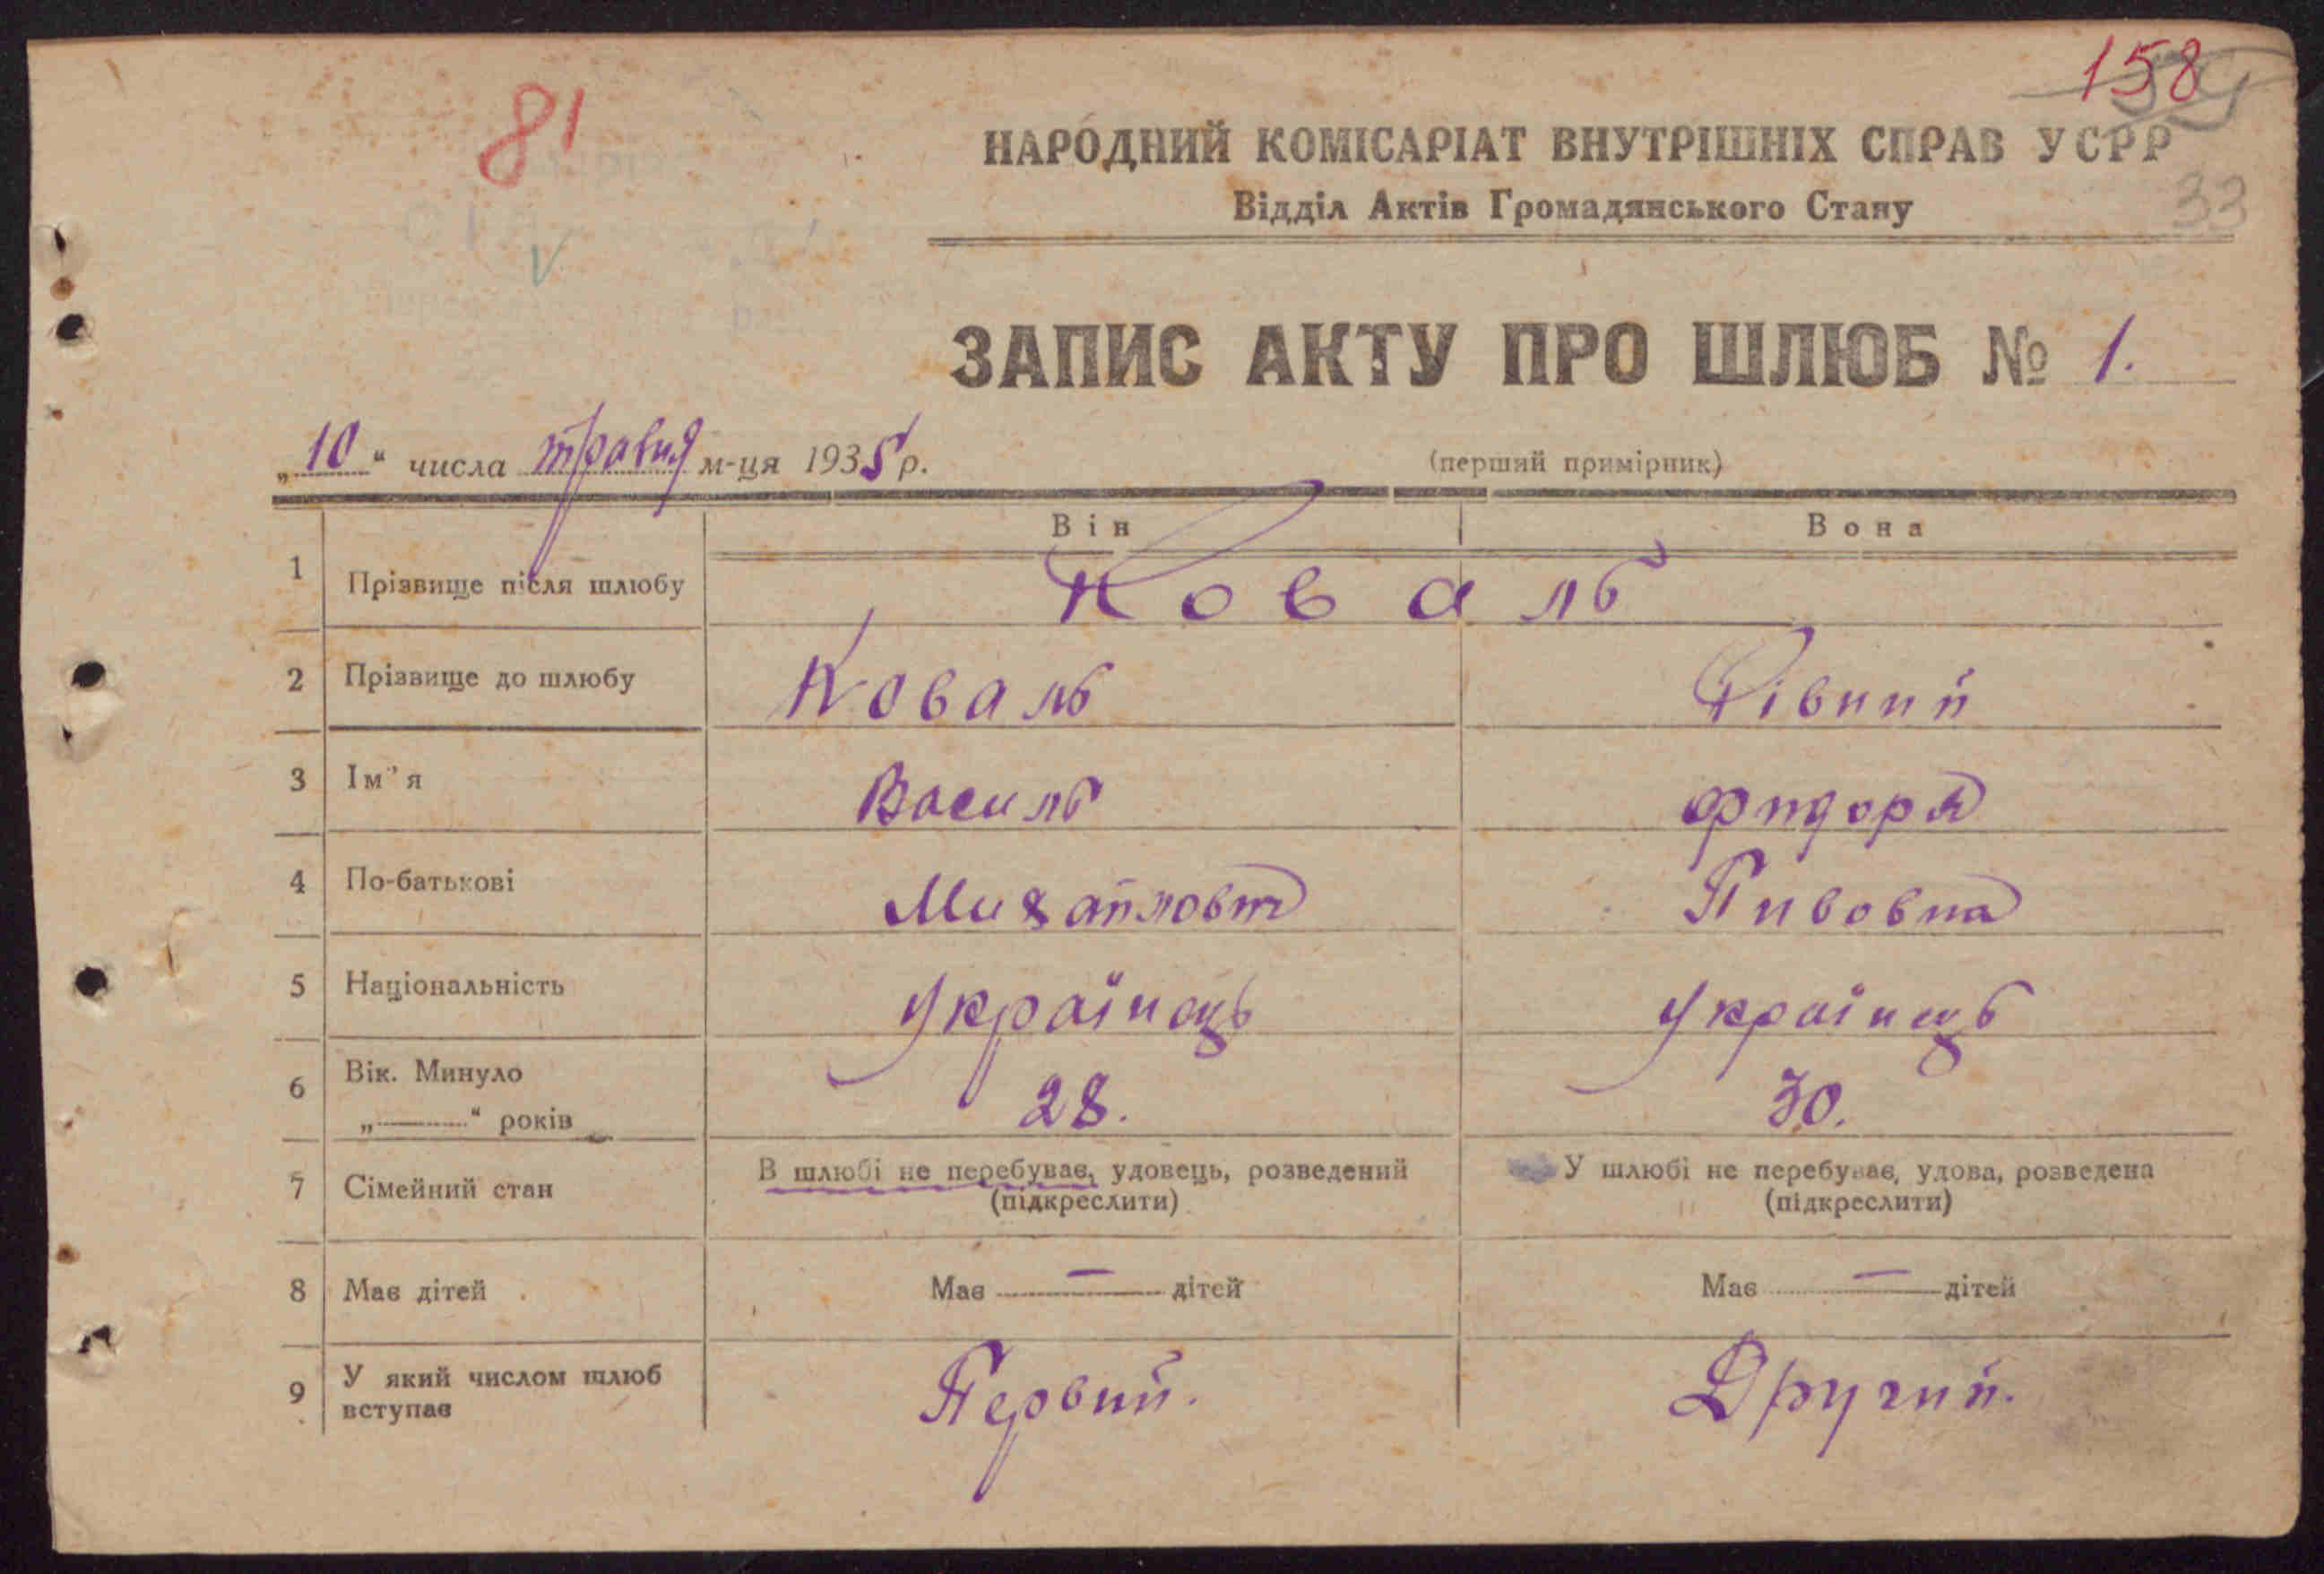 81
158
НАРОДНИЙ КОМІСАРІАТ ВНУТРІШНІХ СПРАВ УСРР
Відділ Актів Громадянського Стану
33
ЗАПИС АКТУ ПРО ШЛЮБ № 1.
„10“ числа травня м-ця 1935 р.
(перший примірник)
Він Вона
1 Прізвище після шлюбу Коваль
2 Прізвище до шлюбу Коваль Рівний
3 Ім'я Василь
4 По-батькові Михайлови Пивовна
5 Національність Українець Українець
6 Вік. Минуло „ “ років 28. 30.
7 Сімейний стан В шлюбі не перебував, удовець, розведений У шлюбі не перебував, удова, розведена
(підкреслити) (підкреслити)
8 Має дітей Має — дітей Має — дітей
9 У який числом шлюб вступав Первий. Другий.